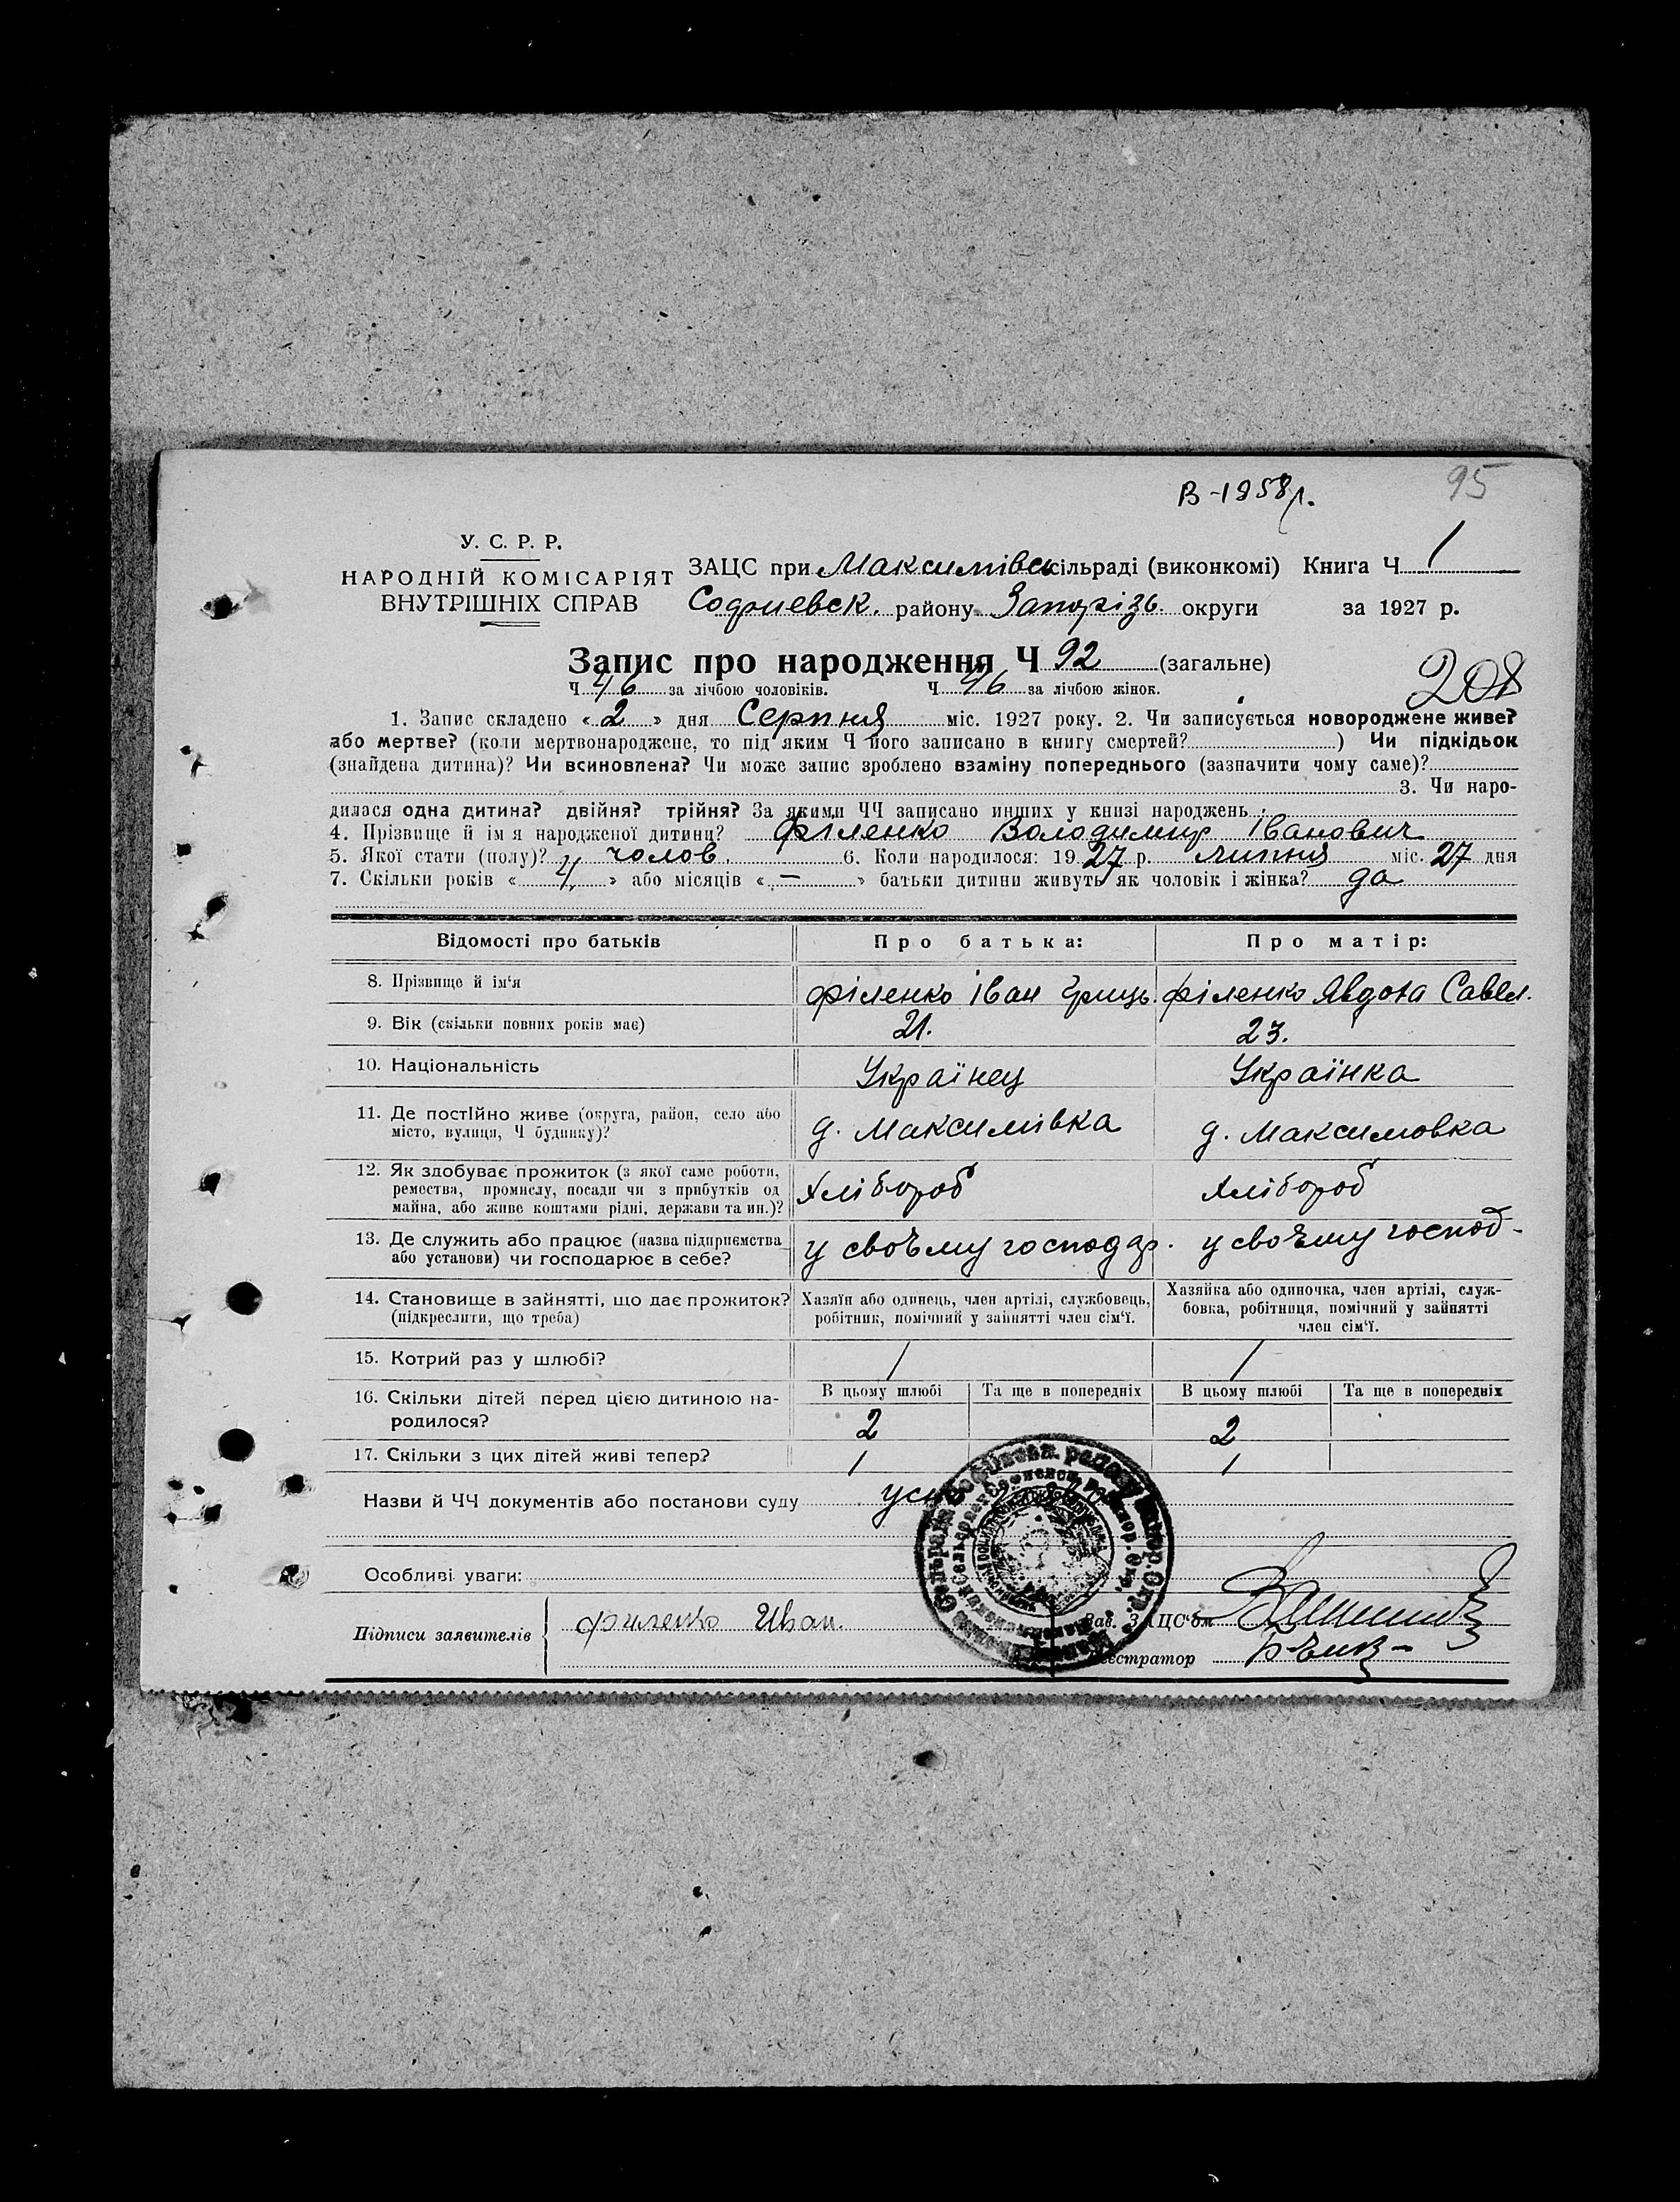 В-1958 р.
95
У. С. Р. Р.
НАРОДНІЙ КОМІСАРІЯТ
ВНУТРІШНІХ СПРАВ
ЗАЦС при Максимівсь сільраді (виконкомі) Книга Ч 1
Софиевск. району Запорізь. округи за 1927 р.
Запис про народження Ч 92 (загальне)
208
Ч 46 за лічбою чоловіків. Ч 46 за лічбою жінок.
1. Запис складено « 2 » дня Серпня міс. 1927 року. 2. Чи записується новороджене живе?
або мертве? (коли мертвонароджене, то під яким Ч його записано в книгу смертей? ) Чи підкідьок
(знайдена дитина)? Чи всиновлена? Чи може запис зроблено взаміну попереднього (зазначити чому саме)?
3. Чи наро-
дилася одна дитина? двійня? трійня? За якими ЧЧ записано инших у книзі народжень
4. Прізвище й імя народженої дитини? Філенко Володимир Іванович
5. Якої стати (полу)? чолов. 6. Коли народилося: 1927 р. липня міс. 27 дня
7. Скільки років « 4 » або місяців « – » батьки дитини живуть як чоловік і жінка? да
Відомості про батьків
Про батька:
Про матір:
8. Прізвище й ім'я
Філенко Іван Гриць.
Філенко Явдота Савел.
9. Вік (скільки повних років має)
21.
23.
10. Національність
Українец
Українка
11. Де постійно живе (округа, район, село або
місто, вулиця, Ч будинку)?
д. Максимівка
д. Максимовка
12. Як здобуває прожиток (з якої саме роботи,
ремества, промислу, посади чи з прибутків од
майна, або живе коштами рідні, держави та ин.)?
Хлібороб
Хлібороб
13. Де служить або працює (назва підприємства
або установи) чи господарює в себе?
у своъму господар.
у своъму господ-
14. Становище в зайнятті, що дає прожиток?
(підкреслити, що треба)
Хазяїн або одинець, член артілі, службовець,
робітник, помічний у зайнятті член сім'ї.
Хазяйка або одиночка, член артілі, служ-
бовка, робітниця, помічний у зайнятті
член сім'ї.
15. Котрий раз у шлюбі?
1
1
16. Скільки дітей перед цією дитиною на-
родилося?
В цьому шлюбі
Та ще в попередніх
В цьому шлюбі
Та ще в попередніх
2
2
17. Скільки з цих дітей живі тепер?
1
1
Назви й ЧЧ документів або постанови суду
Особливі уваги:
Підписи заявителів
Филенко Иван.
Зав. ЗАЦС'ом
Реєстратор